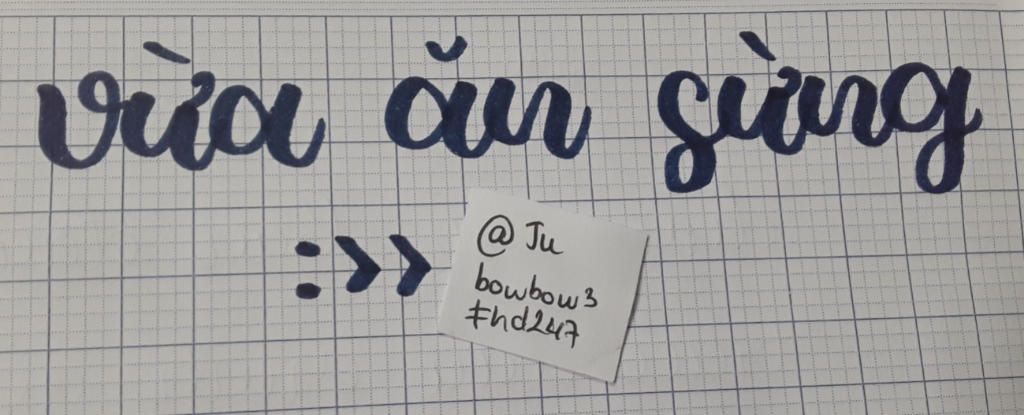 vừa ăn sừng
:>>
@ Ju
bowbow3
#hd247